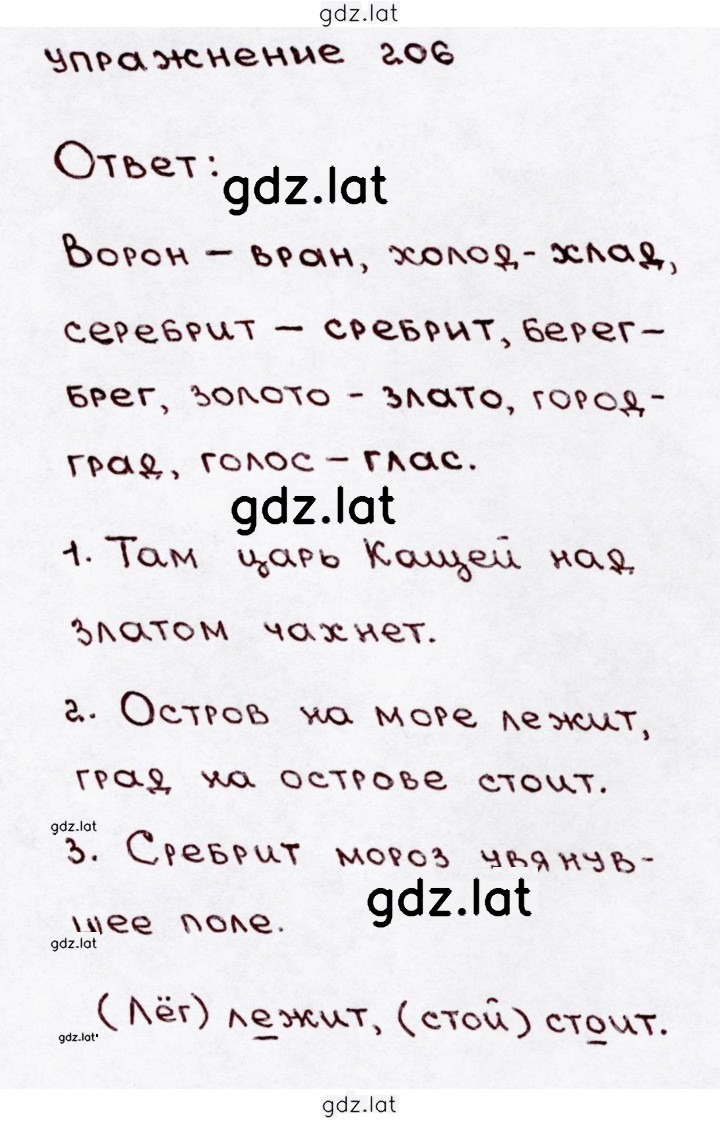 gdz.lat
упражнение 206
Ответ:
gdz.lat
Ворон – вран, холод- хлад,
серебрит – сребрит, берег–
брег, золото - злато, город-
град, голос – глас.
gdz.lat
1. Там царь Кащей над
златом чахнет.
2. Остров на море лежит,
град на острове стоит.
gdz.lat
3. Сребрит мороз увянув-
gdz.lat
шее поле.
gdz.lat
(Лёг) лежит, (стой) стоит.
gdz.lat
gdz.lat